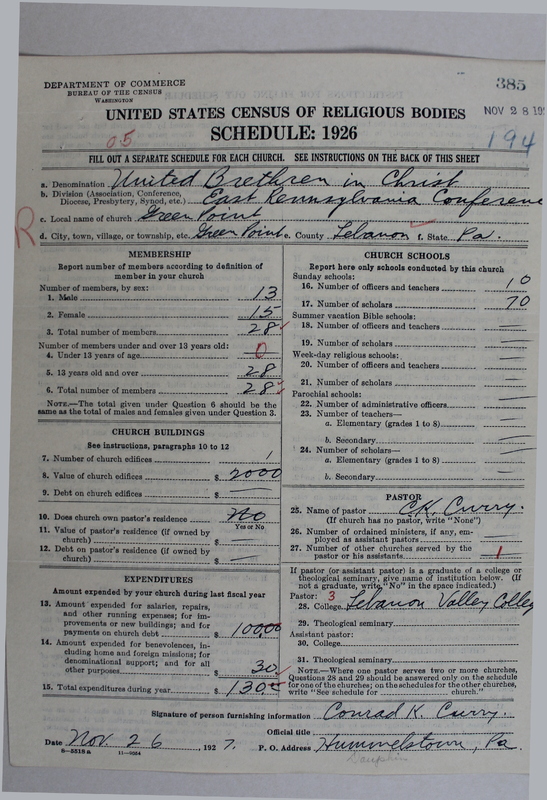 DEPARTMENT OF COMMERCE
BUREAU OF THE CENSUS
WASHINGTON
385
NOV 28 19
UNITED STATES CENSUS OF RELIGIOUS BODIES
SCHEDULE: 1926
05
194
FILL OUT A SEPARATE SCHEDULE FOR EACH CHURCH. SEE INSTRUCTIONS ON THE BACK OF THIS SHEET
a. Denomination United Brethren in Christ
b. Division (Association, Conference, Diocese, Presbytery, Synod, etc.) East Pennsylvania Conference
c. Local name of church Green Point
R
d. City, town, village, or township, etc. Green Point e. County Lebanon f. State Pa.
MEMBERSHIP
Report number of members according to definition of
member in your church
Number of members, by sex:
1. Male 13
2. Female 15
3. Total number of members 28
Number of members under and over 13 years old:
4. Under 13 years of age 0
5. 13 years old and over 28
6. Total number of members 28
NOTE.—The total given under Question 6 should be the
same as the total of males and females given under Question 3.
CHURCH BUILDINGS
See instructions, paragraphs 10 to 12
7. Number of church edifices 1
8. Value of church edifices $ 2000
9. Debt on church edifices $ —
10. Does church own pastor's residence No
Yes or No
11. Value of pastor's residence (if owned by
church) $ —
12. Debt on pastor's residence (if owned by
church) $ —
EXPENDITURES
Amount expended by your church during last fiscal year
13. Amount expended for salaries, repairs,
and other running expenses; for im-
provements or new buildings; and for
payments on church debt $ 100.00
14. Amount expended for benevolences, in-
cluding home and foreign missions; for
denominational support; and for all
other purposes $ 30
15. Total expenditures during year $ 130
CHURCH SCHOOLS
Report here only schools conducted by this church
Sunday schools:
16. Number of officers and teachers 10
17. Number of scholars 70
Summer vacation Bible schools:
18. Number of officers and teachers —
19. Number of scholars —
Week-day religious schools:
20. Number of officers and teachers —
21. Number of scholars —
Parochial schools:
22. Number of administrative officers —
23. Number of teachers—
a. Elementary (grades 1 to 8) —
b. Secondary —
24. Number of scholars—
a. Elementary (grades 1 to 8) —
b. Secondary —
PASTOR
25. Name of pastor C.K. Curry.
(If church has no pastor, write "None")
26. Number of ordained ministers, if any, em-
ployed as assistant pastors —
27. Number of other churches served by the
pastor or his assistants 1
If pastor (or assistant pastor) is a graduate of a college or
theological seminary, give name of institution below. (If
not a graduate, write "No" in the space indicated.)
Pastor: 3
28. College Lebanon Valley College
29. Theological seminary
Assistant pastor:
30. College
31. Theological seminary
NOTE.—Where one pastor serves two or more churches,
Questions 28 and 29 should be answered only on the schedule
for one of the churches; on the schedules for the other churches,
write "See schedule for church."
Signature of person furnishing information Conrad K. Curry.
Official title
Date Nov. 26, 1927. P. O. Address Hummelstown, Pa.
Dauphin
8-5518a 11-9064